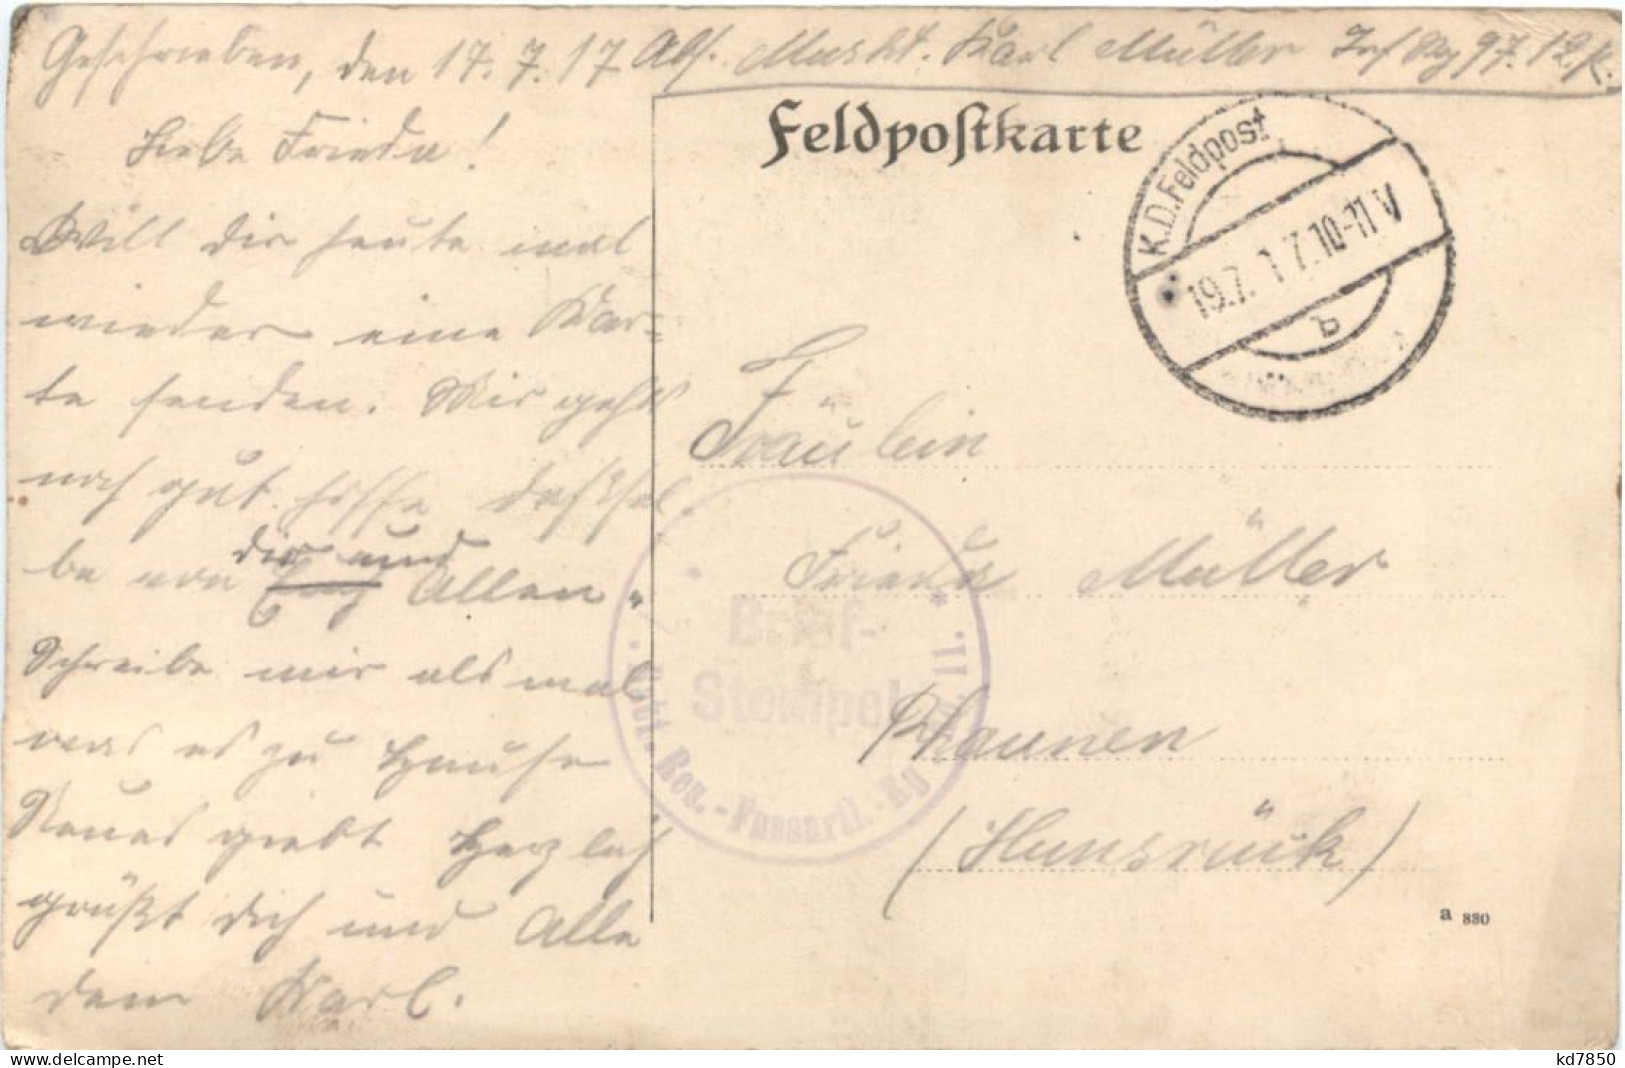 Geschrieben, den 17.7.17 Abs. Muskt. Karl Müller Inf Rg 97. 12.K.
Liebe Frieda!
Will dir heute mal
wieder eine Kar-
te senden. Mir geht
noch gut. hoffe dasssel
be von dir und Allen.
Schreibe mir als mal
was es zu Hause
Neues giebt Herzlich
grüßt dich und Alle
dein Karl.
Feldpostkarte
K.D.Feldpost
19.7.17.10-11V
b
Fräulein
Frieda Müller
Rhaunen
(Hunsrück)
Brief-
Stempel
a 880
delcampe.net
kd7850